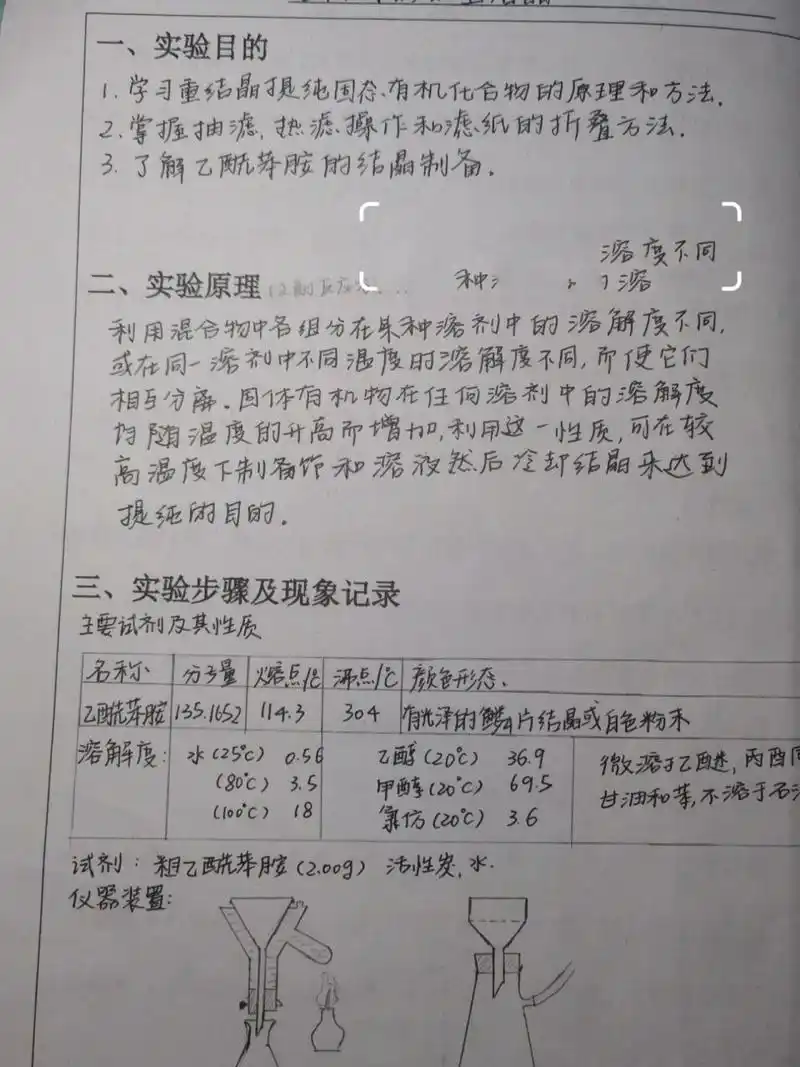 一、实验目的
1. 学习重结晶提纯固态有机化合物的原理和方法.
2. 掌握抽滤, 热滤操作和滤纸的折叠方法.
3. 了解乙酰苯胺的结晶制备.
溶度不同
二、实验原理
种
溶
利用混合物中各组分在某种溶剂中的溶解度不同,
或在同一溶剂中不同温度的溶解度不同, 而使它们
相互分离. 固体有机物在任何溶剂中的溶解度
均随温度的升高而增加, 利用这一性质, 可在较
高温度下制备饱和溶液然后冷却结晶来达到
提纯的目的.
三、实验步骤及现象记录
主要试剂及其性质
名称 分子量 熔点/℃ 沸点/℃ 颜色形态.
乙酰苯胺 135.1652 114.3 304 有光泽的鳞片结晶或白色粉末
溶解度: 水(25℃) 0.56 乙醇(20℃) 36.9 微溶于乙醚, 丙酮
(80℃) 3.5 甲醇(20℃) 69.5 甘油和苯, 不溶于石
(100℃) 18 氯仿(20℃) 3.6
试剂: 粗乙酰苯胺(2.00g) 活性炭, 水.
仪器装置: